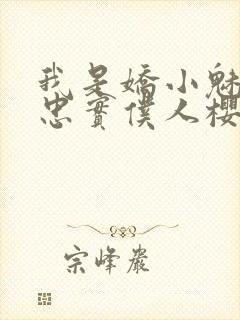 我是嬌小魅
忠實僕人櫻
宗峰巖